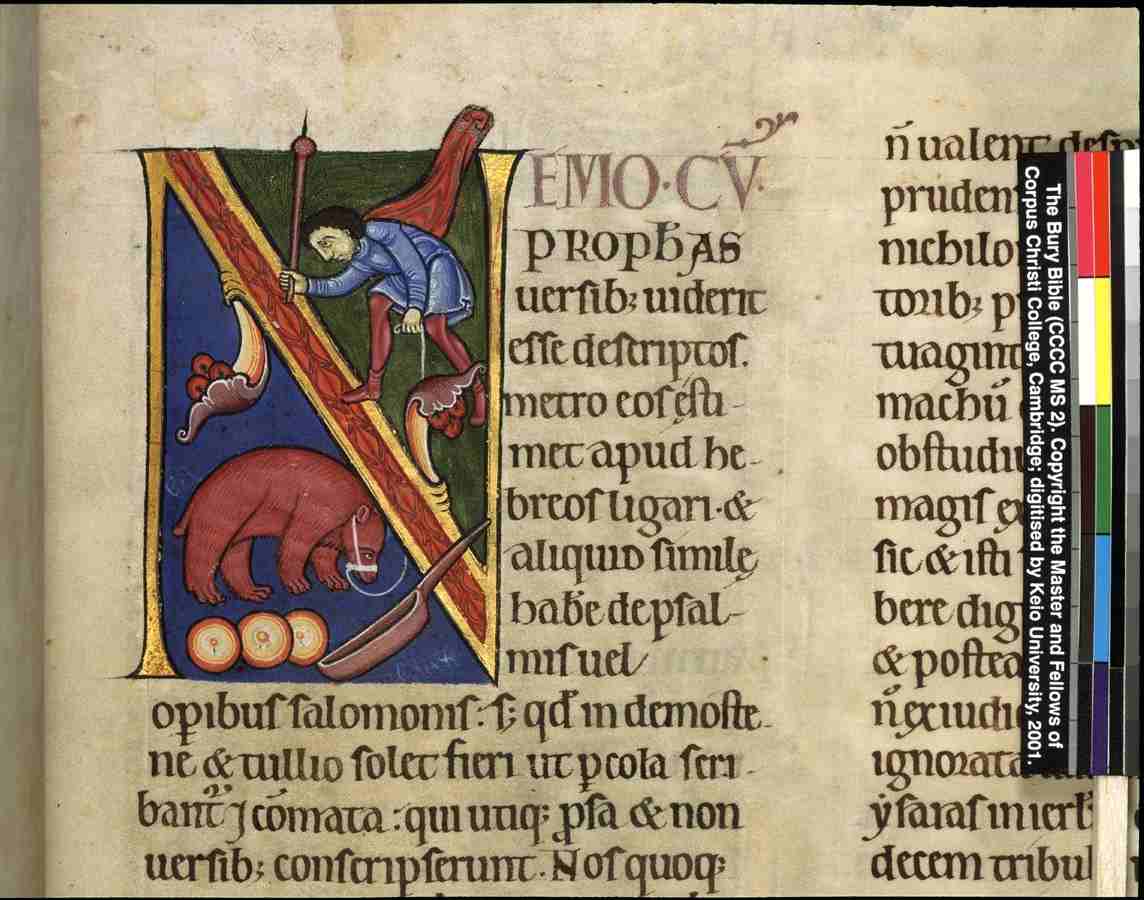 NEMO·CṼ·
PROPħAS
uersib; uiderit
esse descriptos.
metro eos ęsti-
met apud he-
breos ligari·&
aliquid similę
habe de psal-
mis uel
opibus salomonis: s; qđ in demoste-
ne & tullio solet fieri ut p cola scri-
bant' 7 cõmata: qui utiq; psa & non
uersib; conscripserunt. Nos quoq;
ñ ualent
pruden
nichilo
torib; p
tuagint
machũ
obstudu
magis
sic & isti
bere dig
& postea
ñ exiudi
ignorata
ysaias in ierl
decem tribu
The Bury Bible (CCCC MS 2). Copyright the Master and Fellows of
Corpus Christi College, Cambridge; digitised by Keio University, 2001.